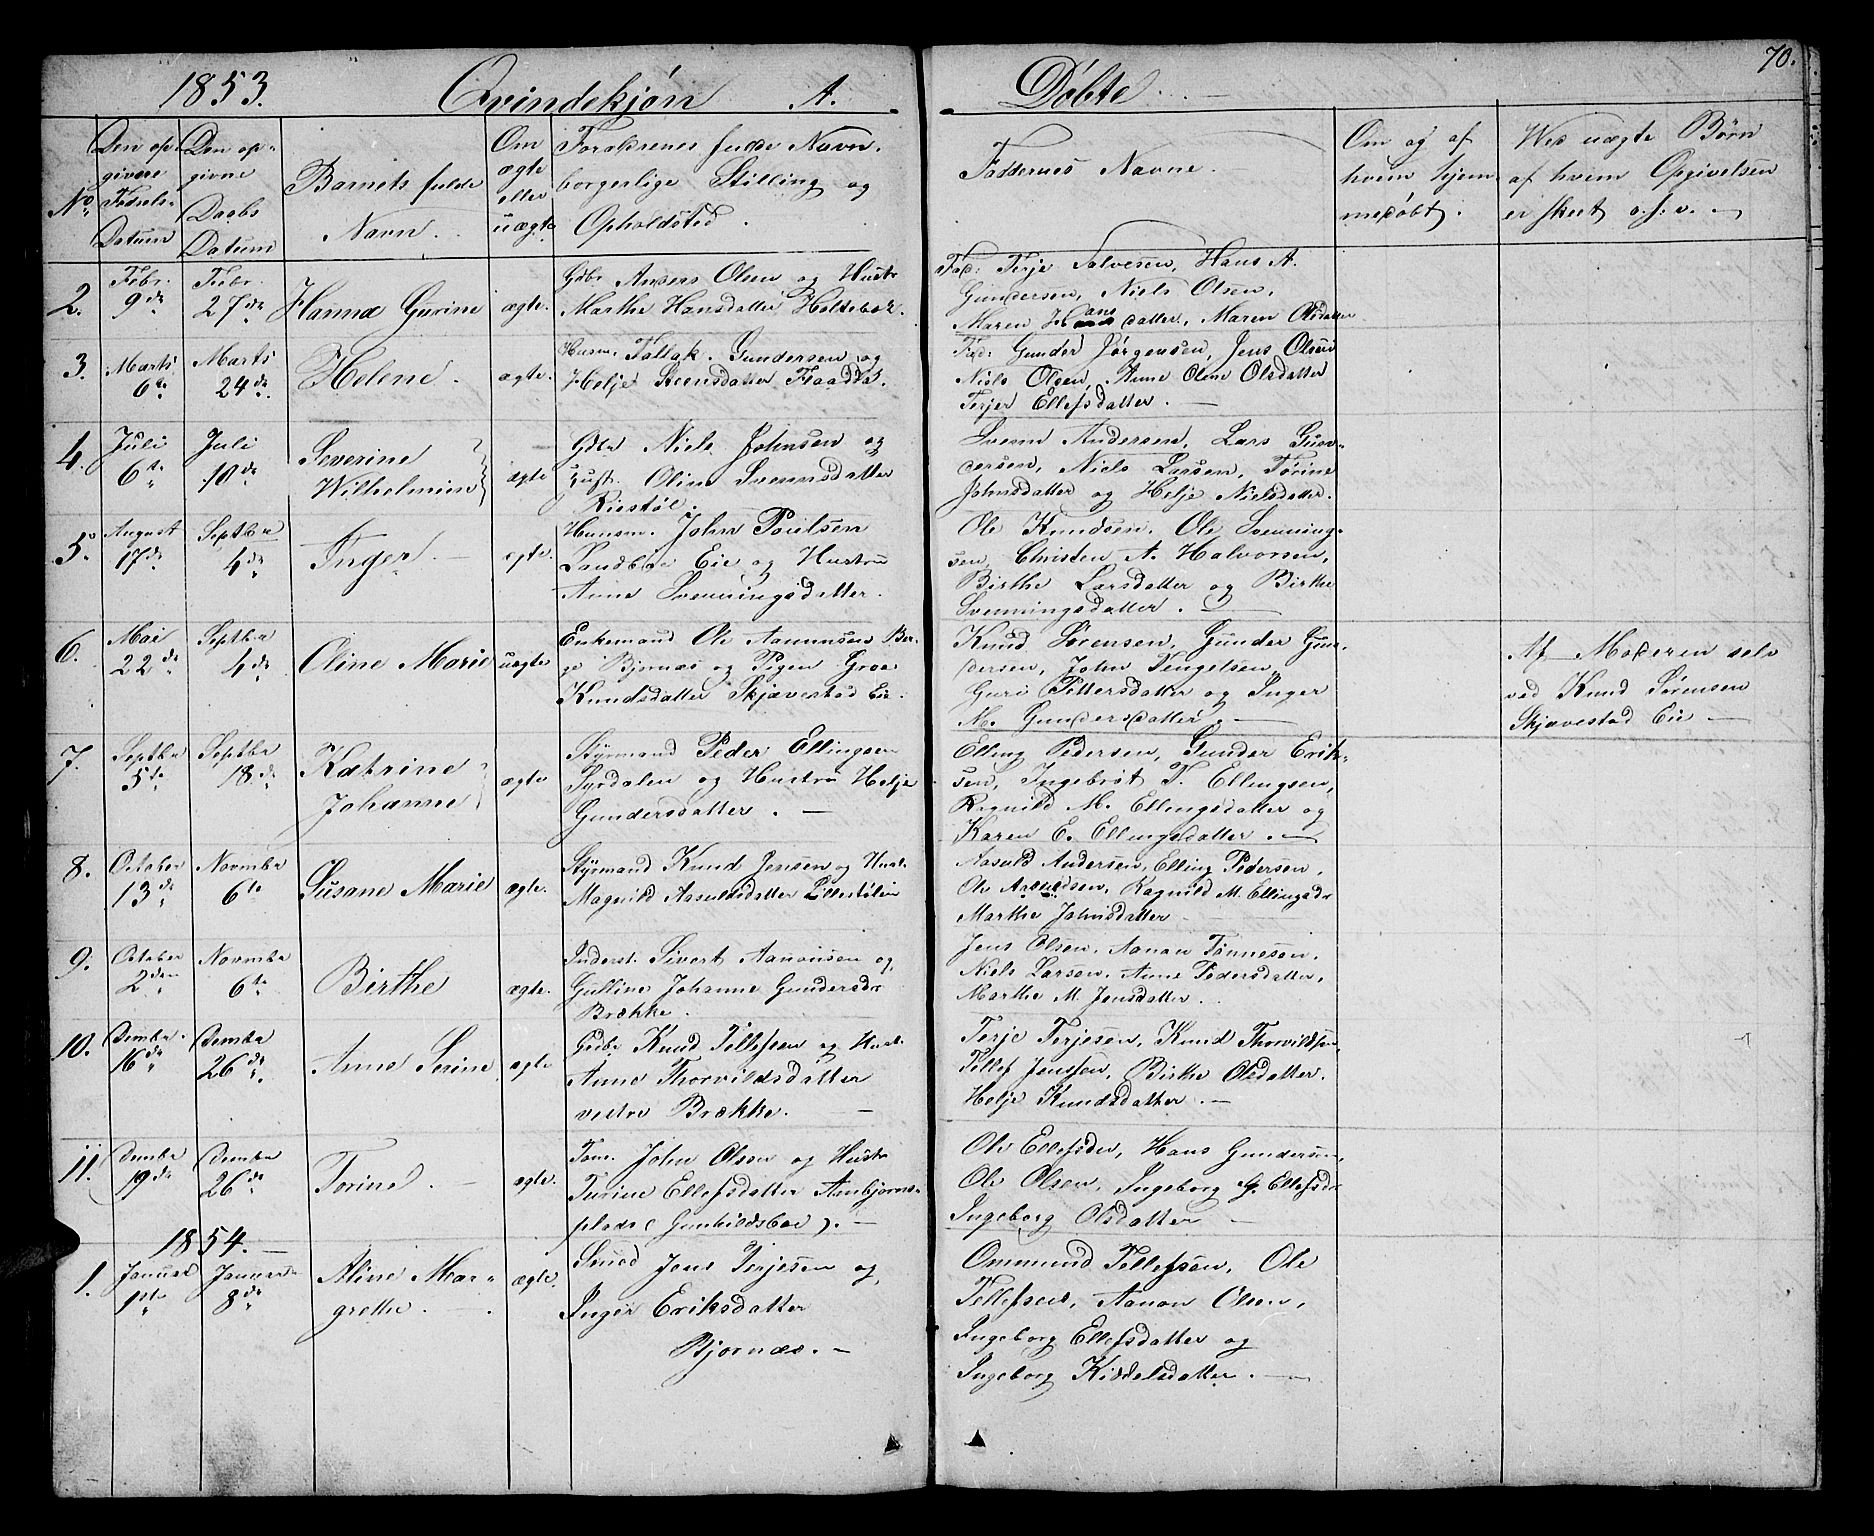 1853. Qvindekjøn A. Døbte. 70.
No.
Den op-
givne
Fødsels-
Datum
Den op-
givne
Daabs
Datum
Barnets fulde
Navn.
Om
ægte
eller
uægte
Forældrenes fulde Navn.
borgerlige Stilling og
Opholdsted.
Faddernes Navne.
Om og af
hvem hjem-
medøbt.
Ved uægte Børn
af hvem Opgivelsen
er skeet o. s. v.
2.
Febr.
9de
Febr.
27de
Hanna Gurine
ægte.
Gdbr Anders Olsen og Hustr
Marthe Hansdatter Holtebæk.
Fad: Terje Salvesen, Hans A.
Gundersen, Niels Olsen,
Maren Hansdatter, Maren Olsdatter
3.
Marts
6te
Marts
24de
Helene.
ægte.
Husm. Tallak Gundersen og
Helje Steensdatter
Fad: Gunder Jørgensen, Jens Olsen
Niels Olsen, Anne Oline Olsdatter
Terjer Ellefsdatter.
4.
Juli
6te
Juli
10de
Severine
Wilhelmine
ægte
Gdbr Niels Johnsen og
Hust. Oline Svennsdatter
Riestøl.
Svenn Andersen, Lars Gun-
dersen, Niels Larsen, Torine
Johnsdatter og Helje Nielsdatter.
5.
August
17de
Septbr
4de
Inger.
ægte.
Huusm. John Poulsen
Sandbøe Eie og Hustru
Anne Svenningsdatter.
Ole Knudsen, Ole Svenning-
sen, Christen A. Halvorsen,
Birthe Larsdatter og Birthe
Svenningsdatter.
6.
Mai
22de
Septbr
4de
Oline Marie
uægte
Enkemand Ole Aanunsen Ber-
ge Bjornæs og Pigen Groe
Knudsdatter Skjævestad Eie.
Knud Sørensen, Gunder Gun-
dersen, John Tengelsen,
Guri Pettersdatter og Inger
M. Gundersdatter.
Af Moderen selv
ved Knud Sørensen
Skjævestad Eie
7.
Septbr
5te
Septbr
18de
Katrine
Johanne
ægte
Styrmand Peder Ellingsen
Syrdalen og Hustru Helje
Gundersdatter.
Elling Pedersen, Gunder Erik-
sen, Ingebrøt T. Ellingsen,
Ragnild M. Ellingsdatter og
Karen E. Ellingsdatter.
8.
October
13de
Novmbr
6te
Susane Marie
ægte.
Styrmand Knud Jensen og Hust.
Magnild Aasuldsdatter Lillestølen
Aasuld Andersen, Elling Pedersen,
Ole Arendsen, Ragnild M. Ellingsdr
Marthe Johnsdatter
9.
October
2den
Novmbr
6te
Birthe
ægte.
Inderst. Sivert Aanonsen og
Gulline Johanne Gundersdr
Brække.
Jens Olsen, Aanon Tønnesen,
Niels Larsen, Anne Pedersdatter,
Marthe M. Jensdatter.
10.
Dcembr
16de
Dcembr
26de
Anne Serine
ægte
Gdbr Knud Tellefsen og Hust.
Anne Thorvildsdatter
vestre Brække.
Terje Terjesen, Knud Thorvildsen,
Tellef Jenssen, Birthe Olsdatter.
Helje Knudsdatter.
11.
Dcembr
19de
Dcembr
26de
Torine.
ægte.
John Olsen og Hustr
Turine Ellefsdatter Aanbjørns-
plads (Gunhildsboe).
Ole Ellefsen, Hans Gundersen,
Ole Olsen, Ingeborg G. Ellefsdr
Ingeborg Olsdatter
1854.
1.
Januar
1ste
Januar
8de
Aline Mar-
grethe.
ægte.
Smed Jens Terjesen og
Inger Eriksdatter
Bjornæs.
Ommund Tellefsen, Ole
Tellefsen, Aanon Olsen,
Ingeborg Ellefsdatter og
Ingeborg Kiddelsdatter.